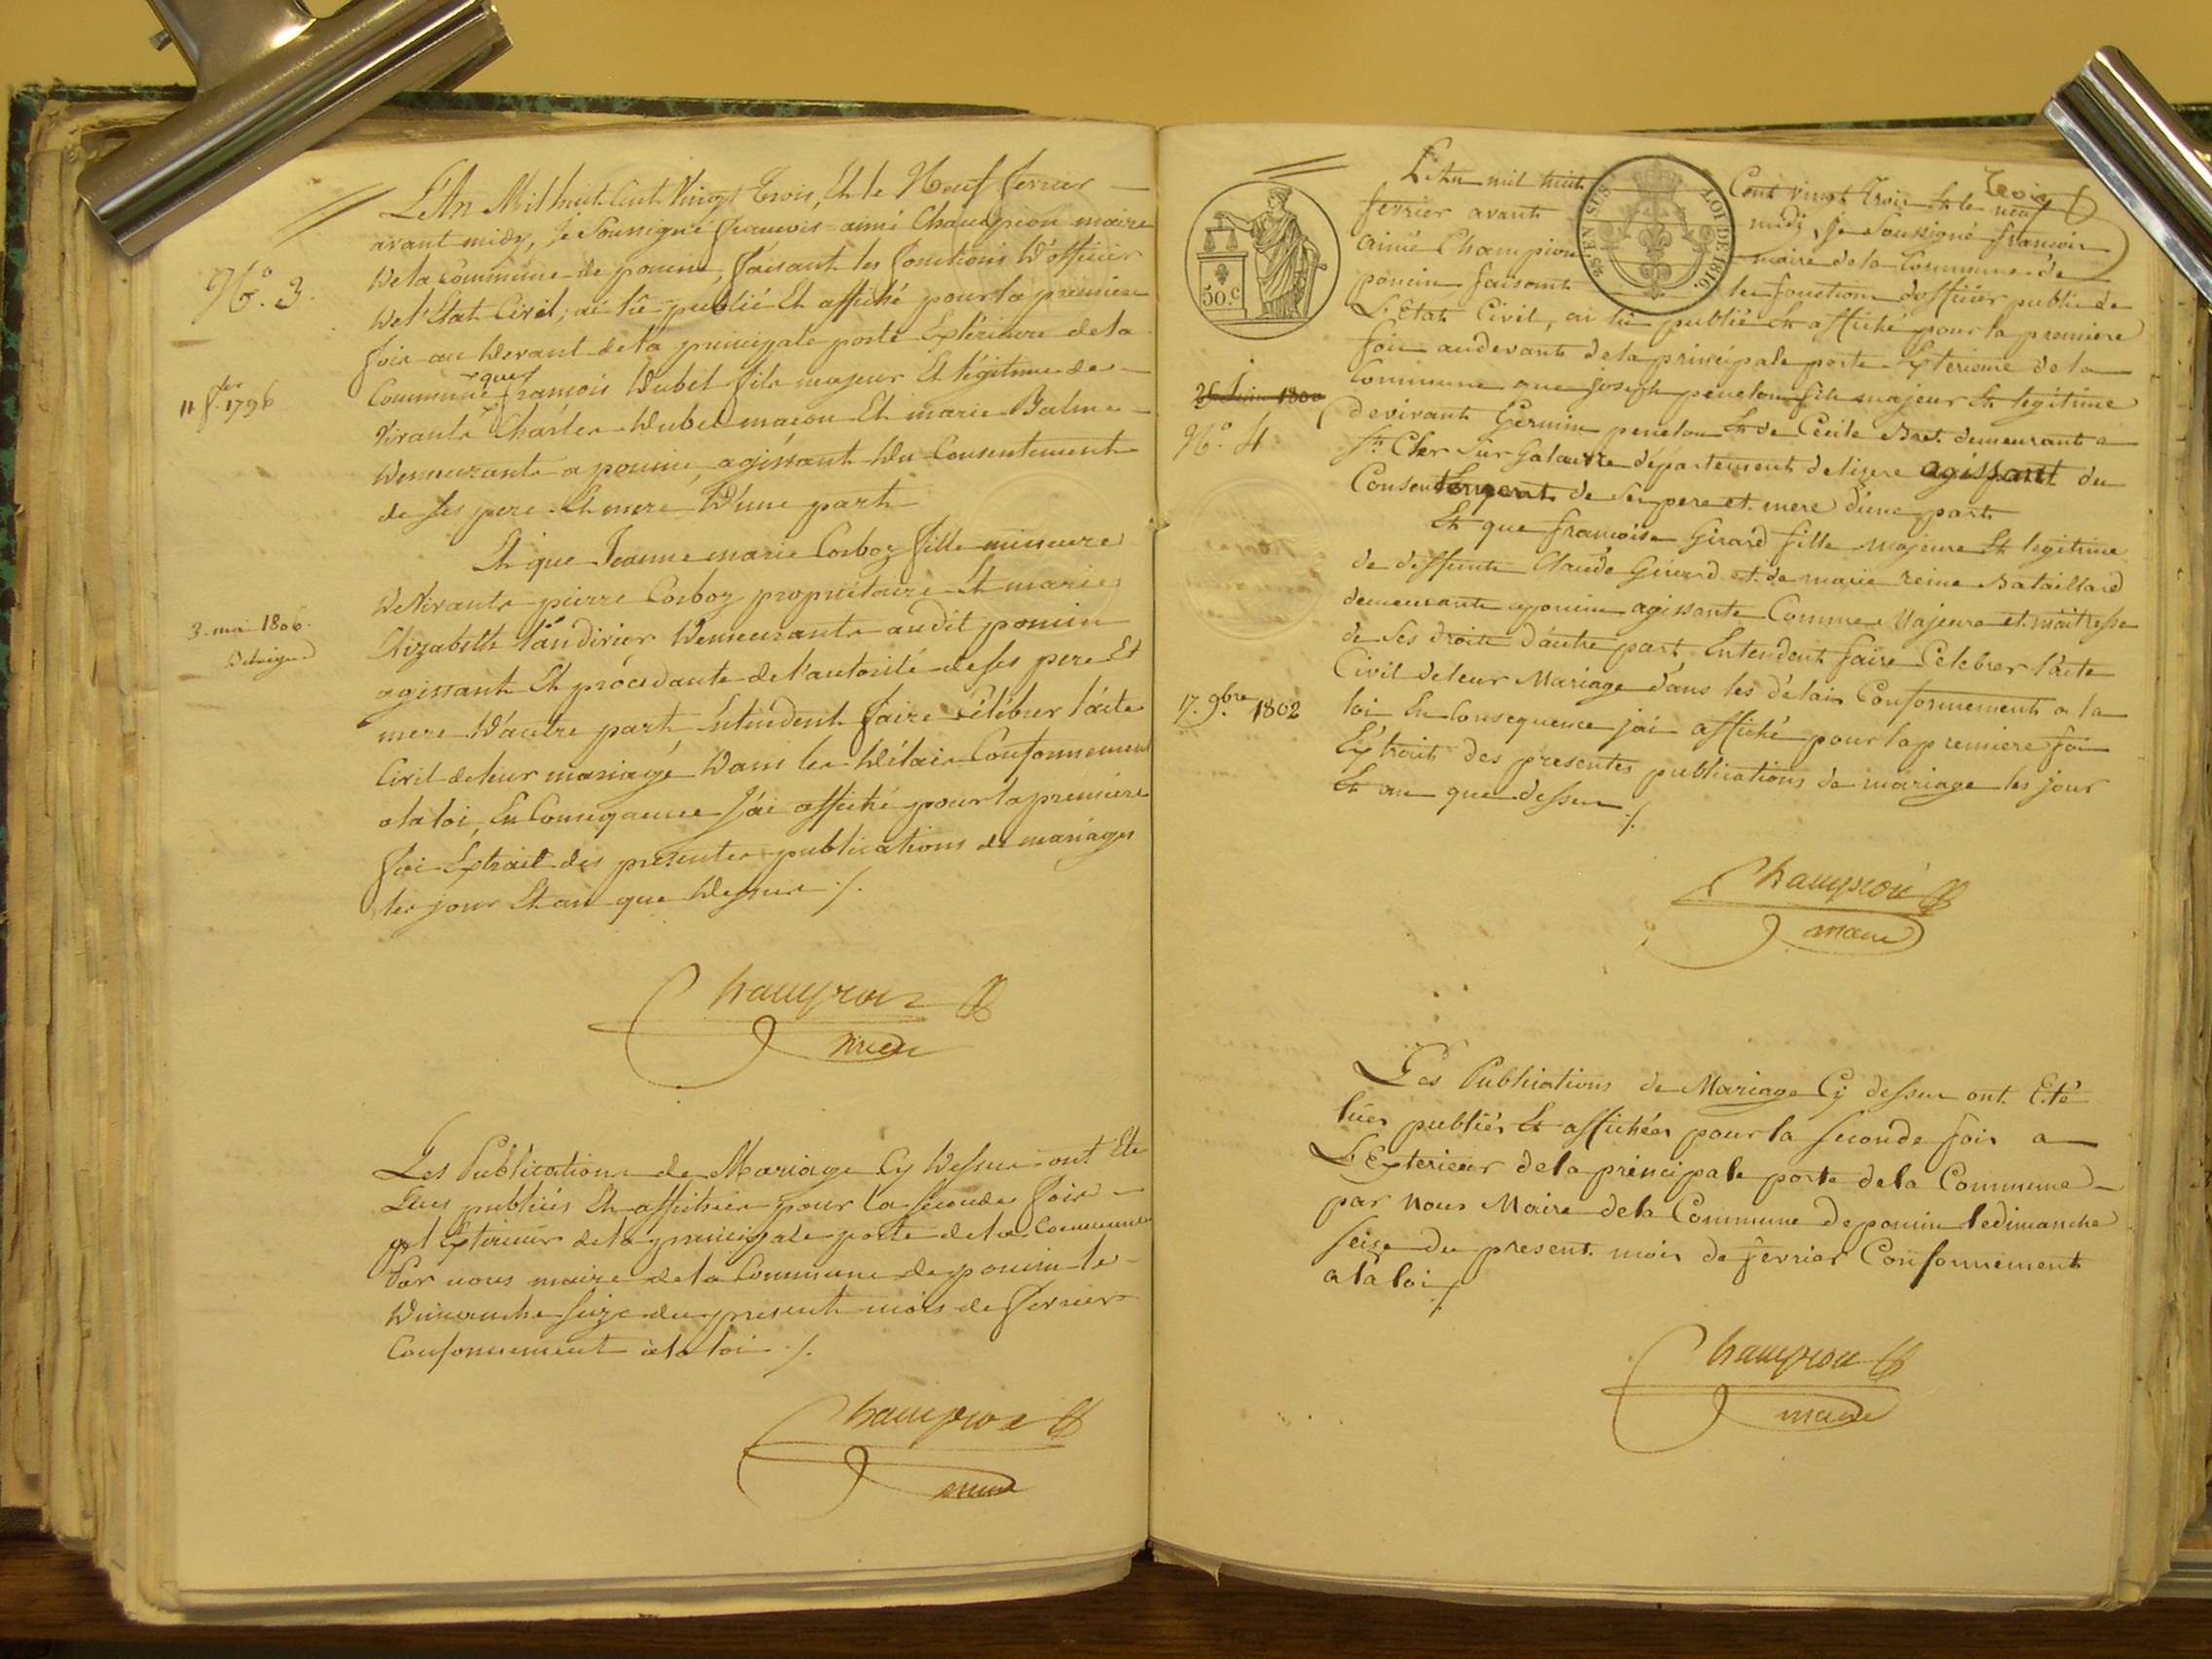 L'An Mil huit Cent Vingt Trois, Et le Neuf fevrier
avant midy, Je Soussigné francois aimé Champion maire
De la Commune de poncin, faisant les fonctions D'officier
De l'Etat Civil, ai lû publié Et affiché pour la premiere
fois au Devant de la principale porte Extérieure de la
Commune que francois Dubel fils majeur Et légitime de
Vivants Charles Dubel maçon Et marie Balme
Demeurants a poncin, agissant Du Consentement
de ses pere Et mere D'une part
Et que Jeanne marie Corboz fille mineure
De Vivants pierre Corboz propriétaire Et marie
Elizabeth Demeurants audit poncin
agissant Et procédante de l'autorité de ses pere Et
mere D'autre part, Entendent faire Célébrer l'acte
Civil de leur mariage Dans les Délais Conformement
a la loi, En Consequence J'ai affiché pour la premiere
foi Extrait des presentes publications de mariages
les jour Et an que Dessus ./.
No. 3.
11 f.er 1796
3. mai 1806.
Champion
maire
Les Publications de Mariage Cy Dessus ont Ete
Lues publiées Et affichées pour la seconde fois
a l'Exterieur de la principale porte de la Commune
Par nous maire de la Commune de poncin le
Dimanche seize du present mois de fevrier
Conformement a la loi ./.
Champion
maire
Trois
L'An mil huit Cent vingt Trois Et le neuf
fevrier avant midi, je Soussigné francois
aimé Champion maire de la Commune de
poncin faisant les fonctions d'officier public de
L'Etat Civil, ai lû publié Et affiché pour la premiere
fois au devant de la principale porte Exterieure de la
Commune que joseph penelon fils majeur Et legitime
de vivants Germin penelon Et de Cécile Bret demeurant a
St. Cher Sur Galaure département de lizere agissant du
Consentement de ses pere et mere d'une part
Et que francoise Girard fille majeure Et legitime
de deffunts Claude Girard et de marie reine Bataillard
demeurante a poncin agissante Comme Majeure et maitresse
de ses droits d'autre part Entendent faire Celebrer l'acte
Civil de leur Mariage dans les délais Conformement a la
loi En Consequence jai affiché pour la premiere foi
Extrait des presentes publications de mariage les jour
Et an que dessus ./.
50.c
25.c EN SUS
LOI DE 1816.
1800
No. 4
17. 9bre 1802
Champion
maire
Les Publications de Mariage Cy dessus ont Eté
lües publiées Et affichées pour la seconde fois a
L'Exterieur de la principale porte de la Commune
par nous Maire de la Commune de poncin le dimanche
seize du present mois de fevrier Conformement
a la loi ./.
Champion
maire